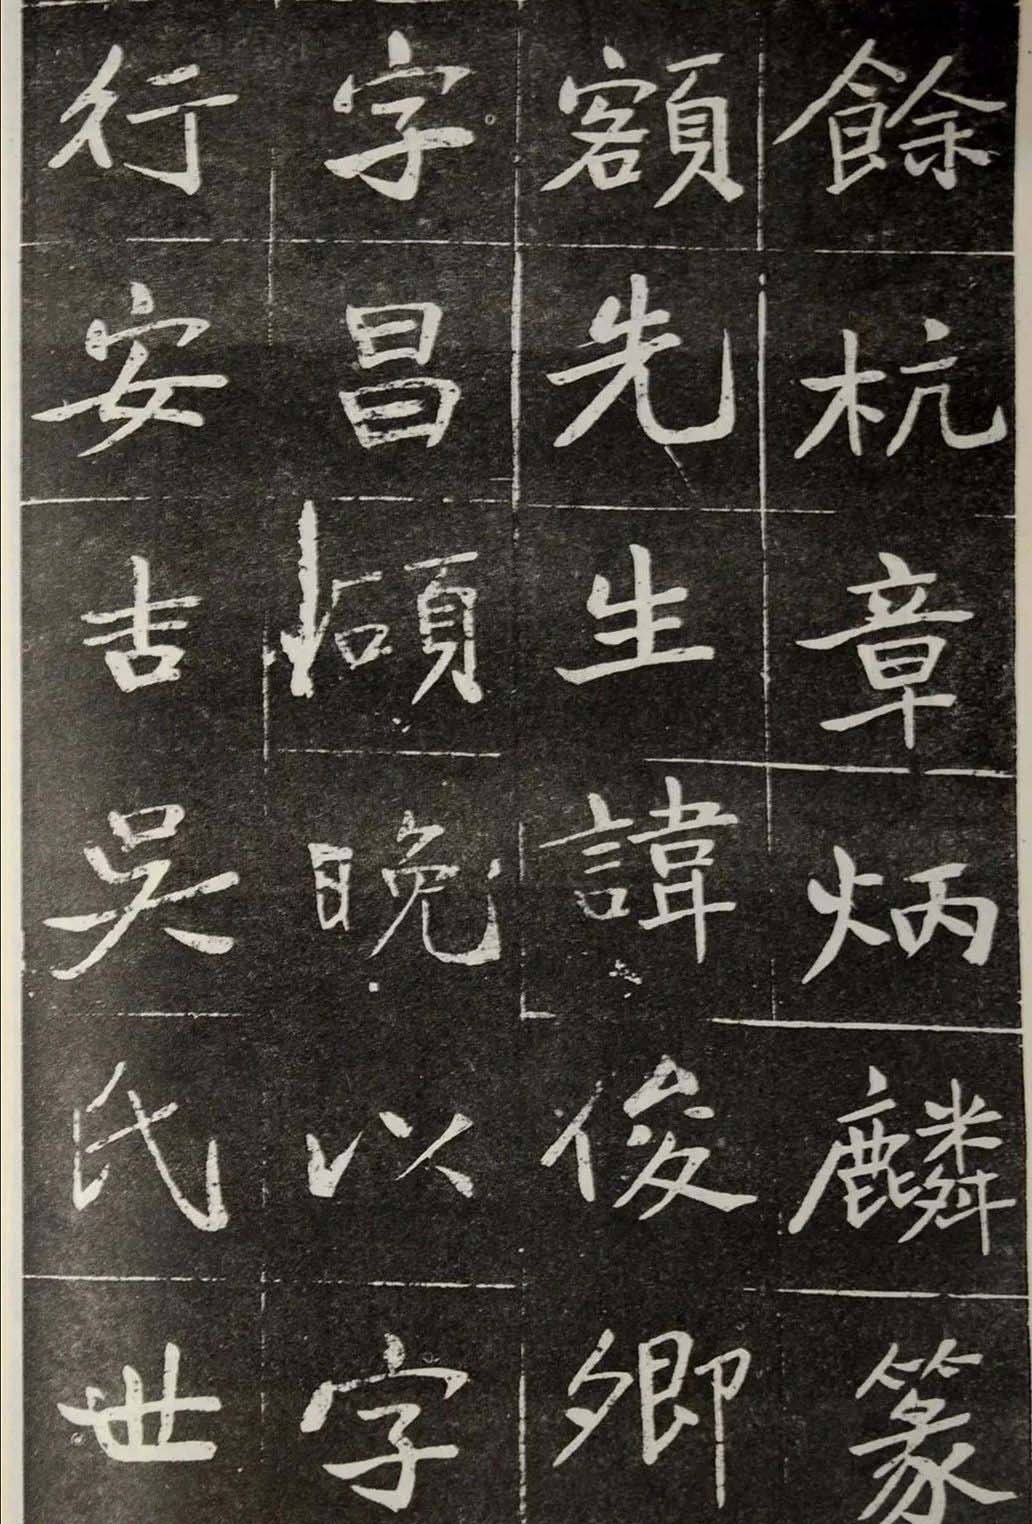 餘杭章炳麟篆
額先生諱俊卿
字昌碩晚以字
行安吉吳氏世